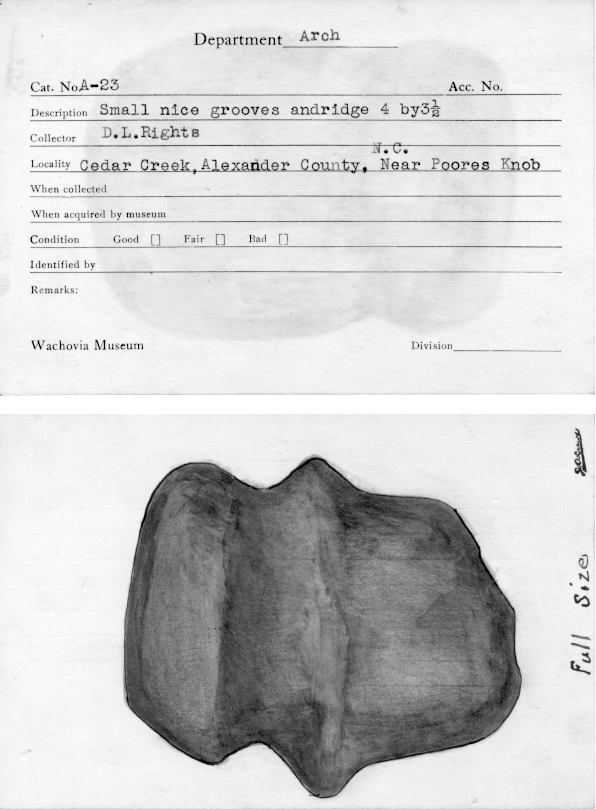 Department Arch
Cat. No. A-23 Acc. No.
Description Small nice grooves andridge 4 by3½
Collector D.L.Rights
N.C.
Locality Cedar Creek,Alexander County, Near Poores Knob
When collected
When acquired by museum
Condition Good [] Fair [] Bad []
Identified by
Remarks:
Wachovia Museum Division
Full Size